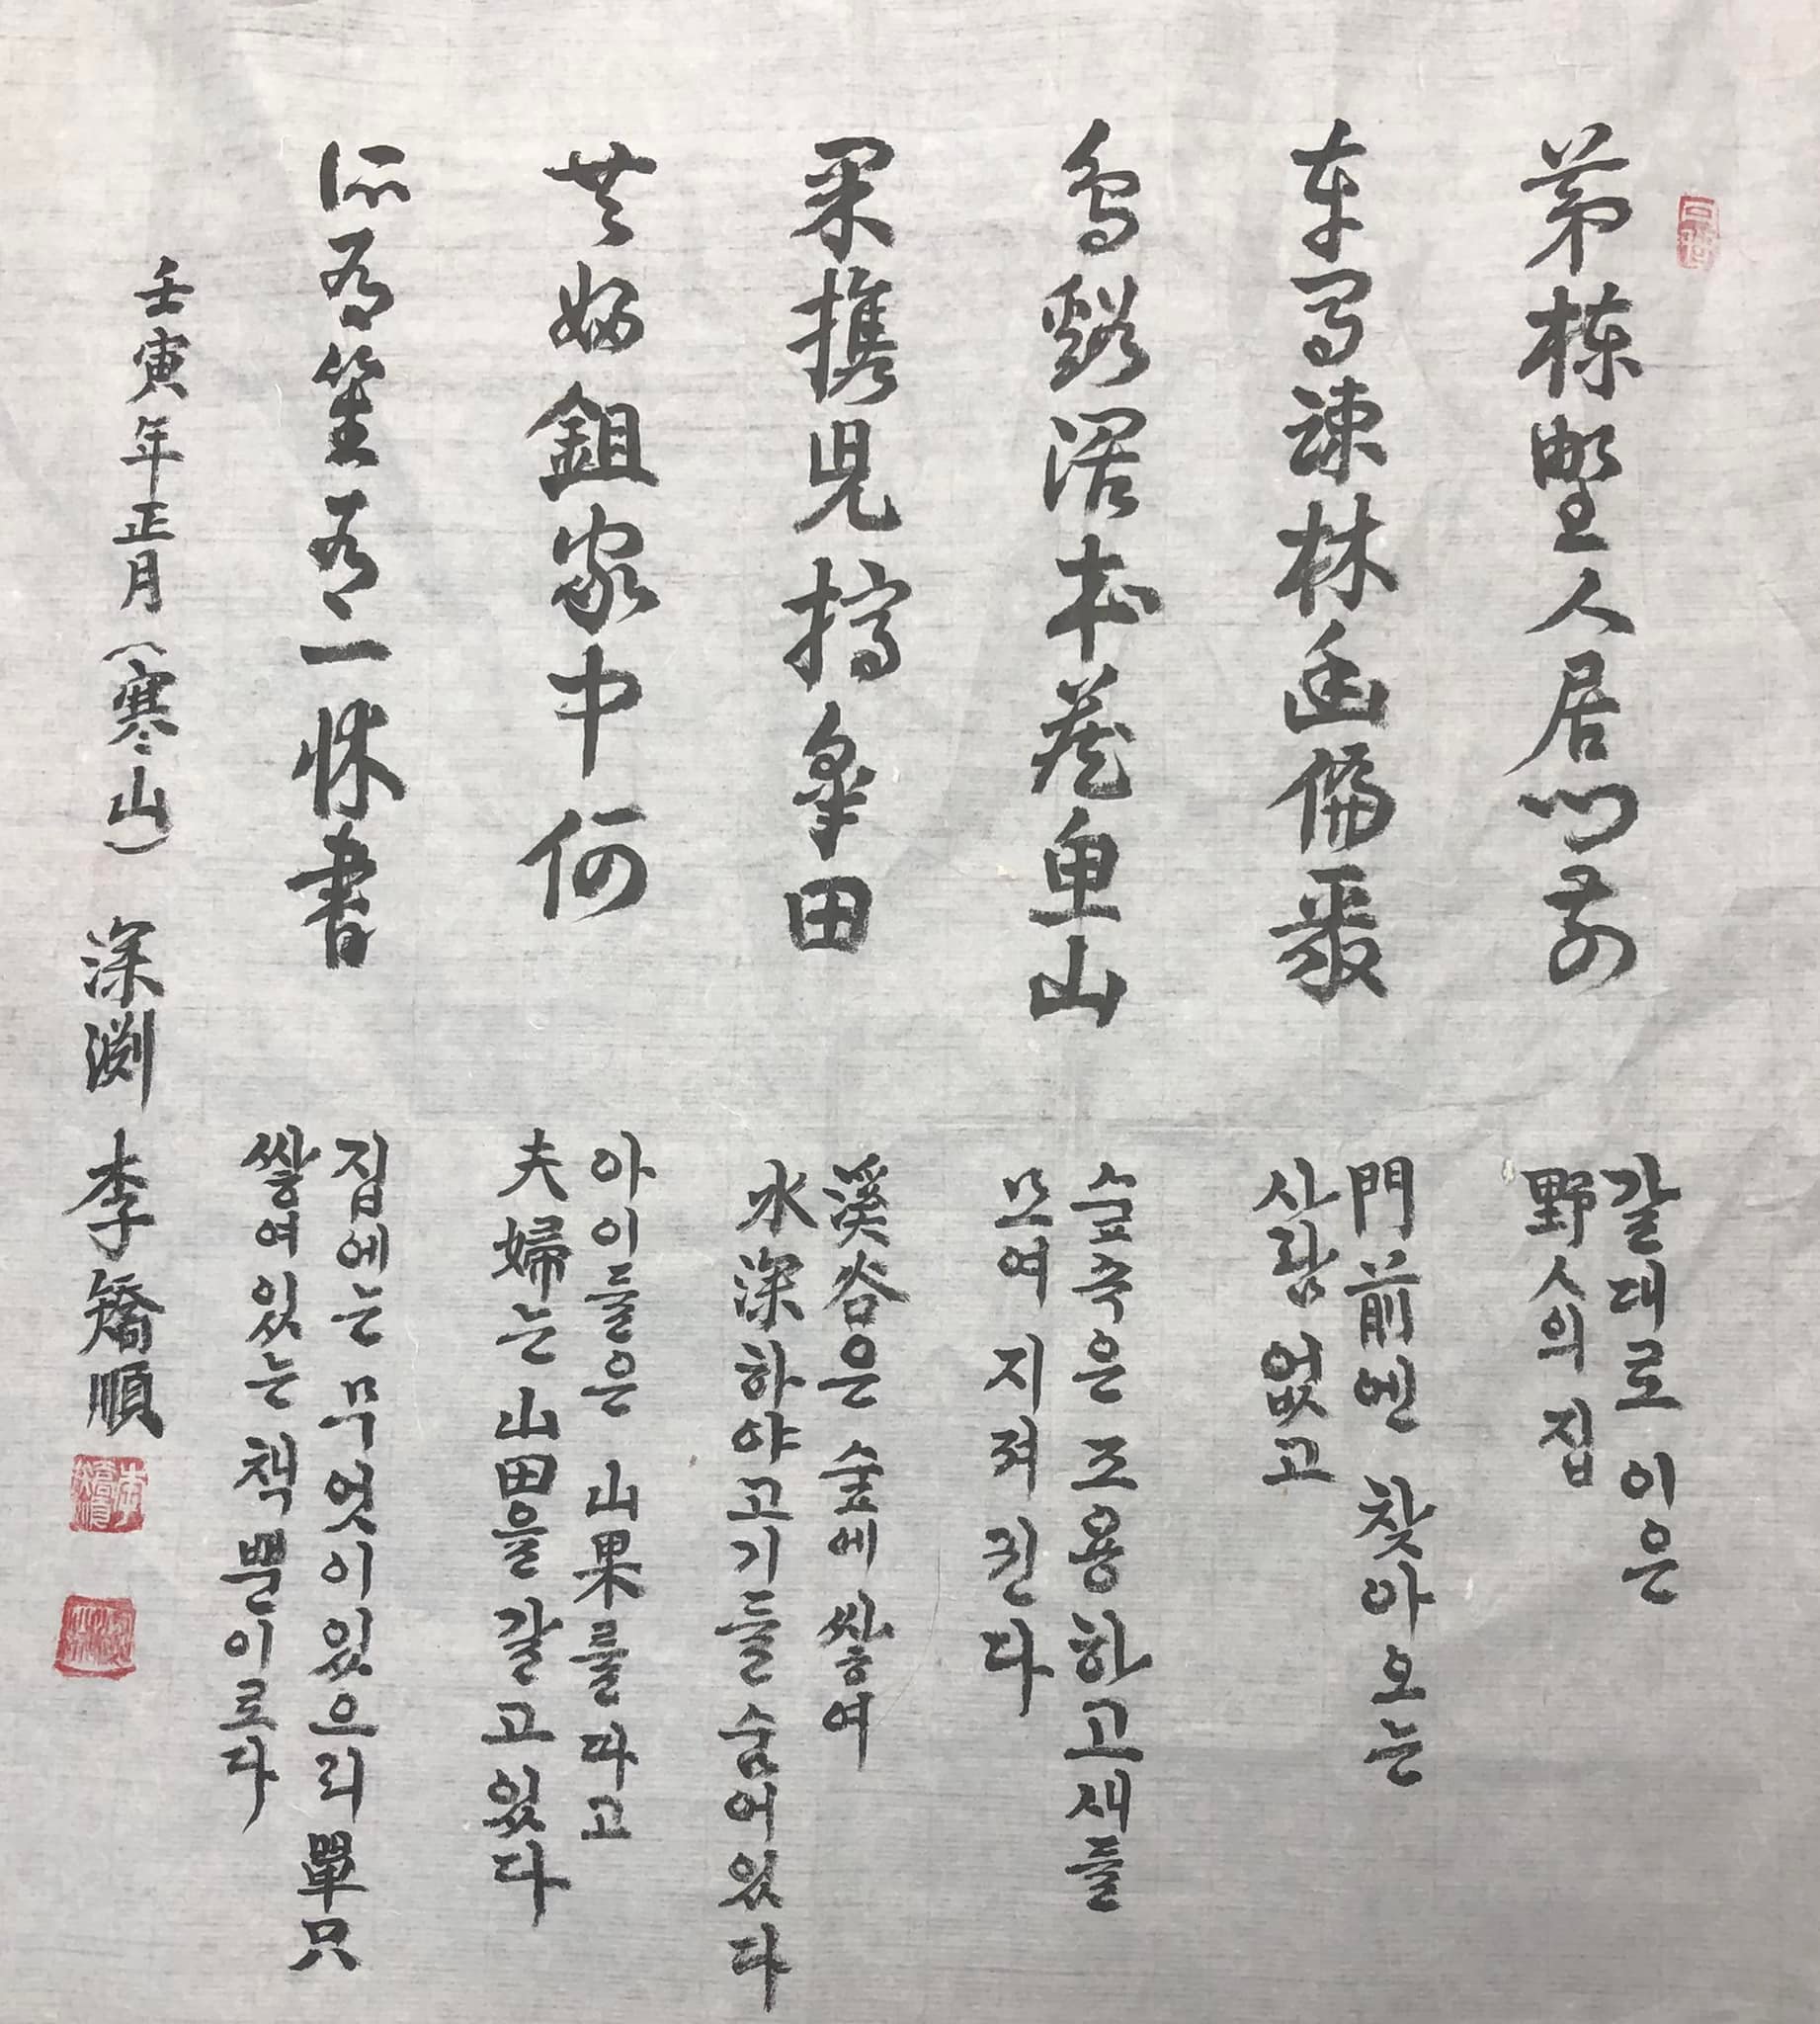 茅棟野人居門前
車馬疎林幽偏聚
鳥谿濶本藏魚山
果携兒摘皐田
共婦鉏家中何
所有有一牀書
갈대로 이은
野人의 집
門前엔 찾아오는
사람 없고
숲속은 조용하고새들
모여 지져귄다
溪谷은 숲에 쌓여
水深하야고기들 숨어있다
아이들은 山果를 따고
夫婦는 山田을 갈고있다
집에는 무엇이있으리 單只
쌓여있는 책뿐이로다
壬寅年正月(寒山) 深渕 李矯順